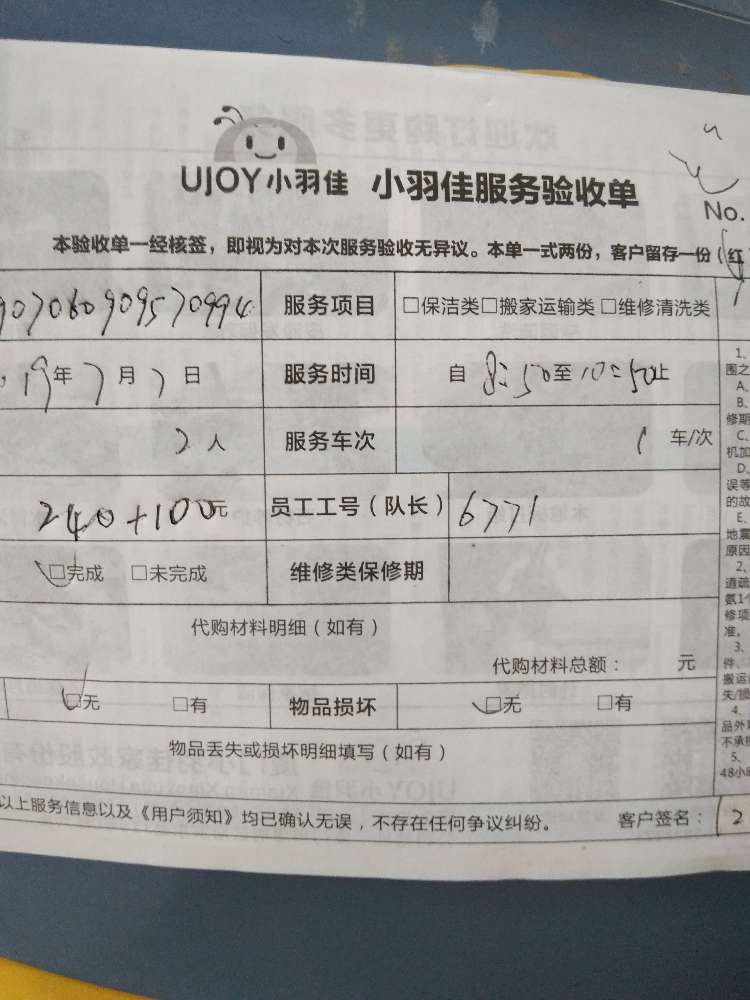 UJOY小羽佳 小羽佳服务验收单
No.
本验收单一经核签，即视为对本次服务验收无异议。本单一式两份，客户留存一份（红
907060909570994 服务项目 □保洁类□搬家运输类□维修清洗类
19年7月7日 服务时间 自8:50至10:50止
2人 服务车次 1车/次
240+100元 员工工号（队长） 6771
□完成 □未完成 维修类保修期
代购材料明细（如有）
代购材料总额： 元
□无 □有 物品损坏 □无 □有
物品丢失或损坏明细填写（如有）
以上服务信息以及《用户须知》均已确认无误，不存在任何争议纠纷。 客户签名：
1、
围之
A、
B、
修期
C、
机加
D、
误等
的故
E、
地震
原因
2、
道疏
氨1个
修项
准。
3、
件、
搬运
失/损
4、
品外
不承担
5、
48小时